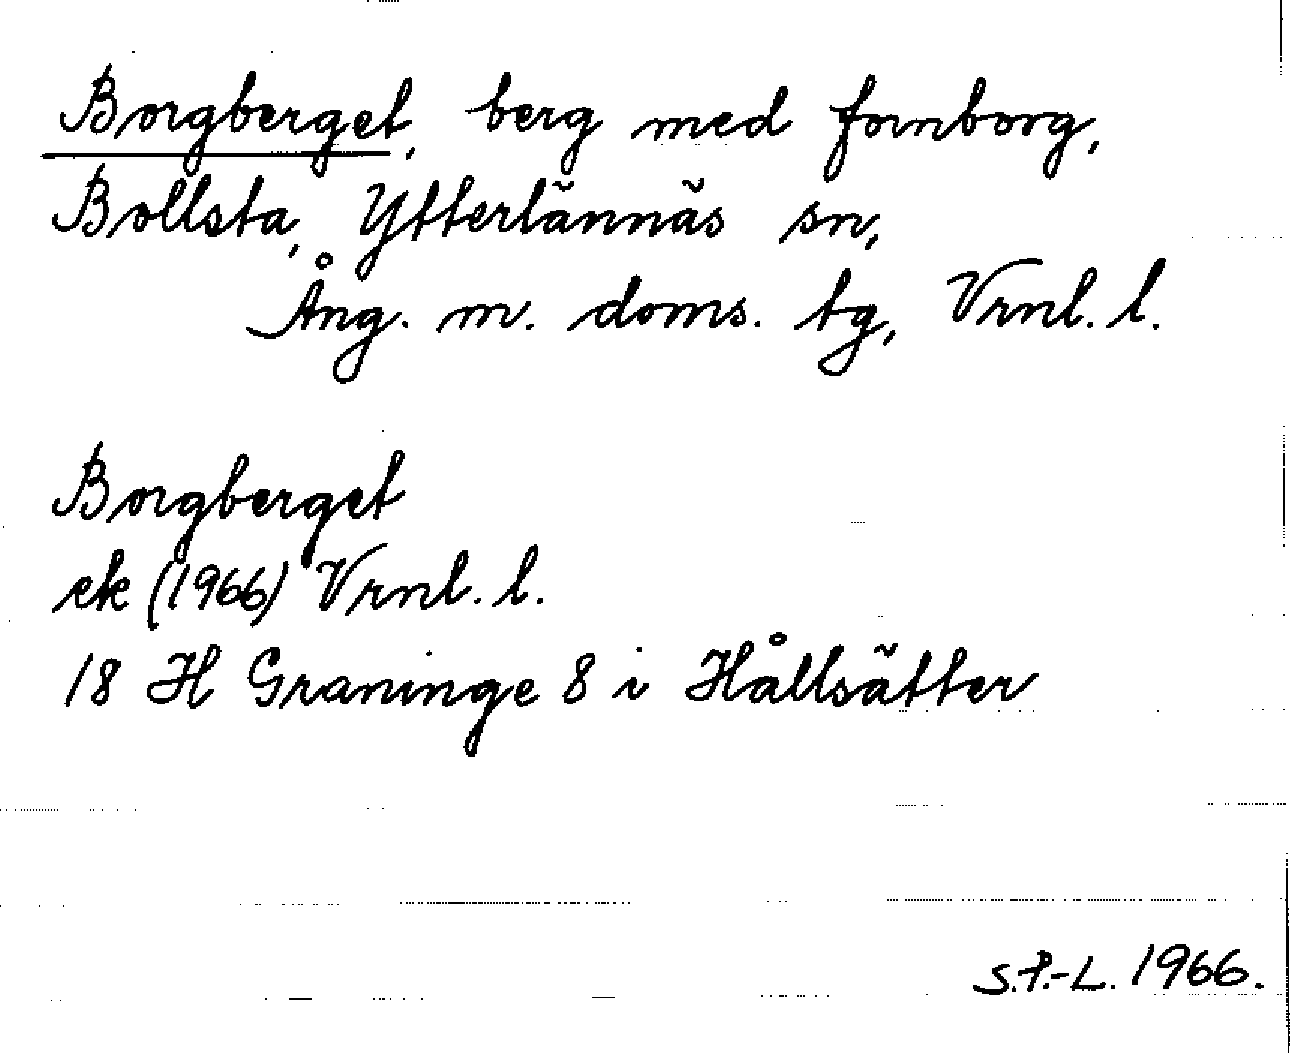 Borgberget, berg med fornborg,
Bollsta, Ytterlännäs sn,
Ång. m. doms. tg, Vrnl. l.
Borgberget
ek (1966) Vrnl. l.
18 H Graninge 8 i Hållsätter
S.P.-L. 1966.